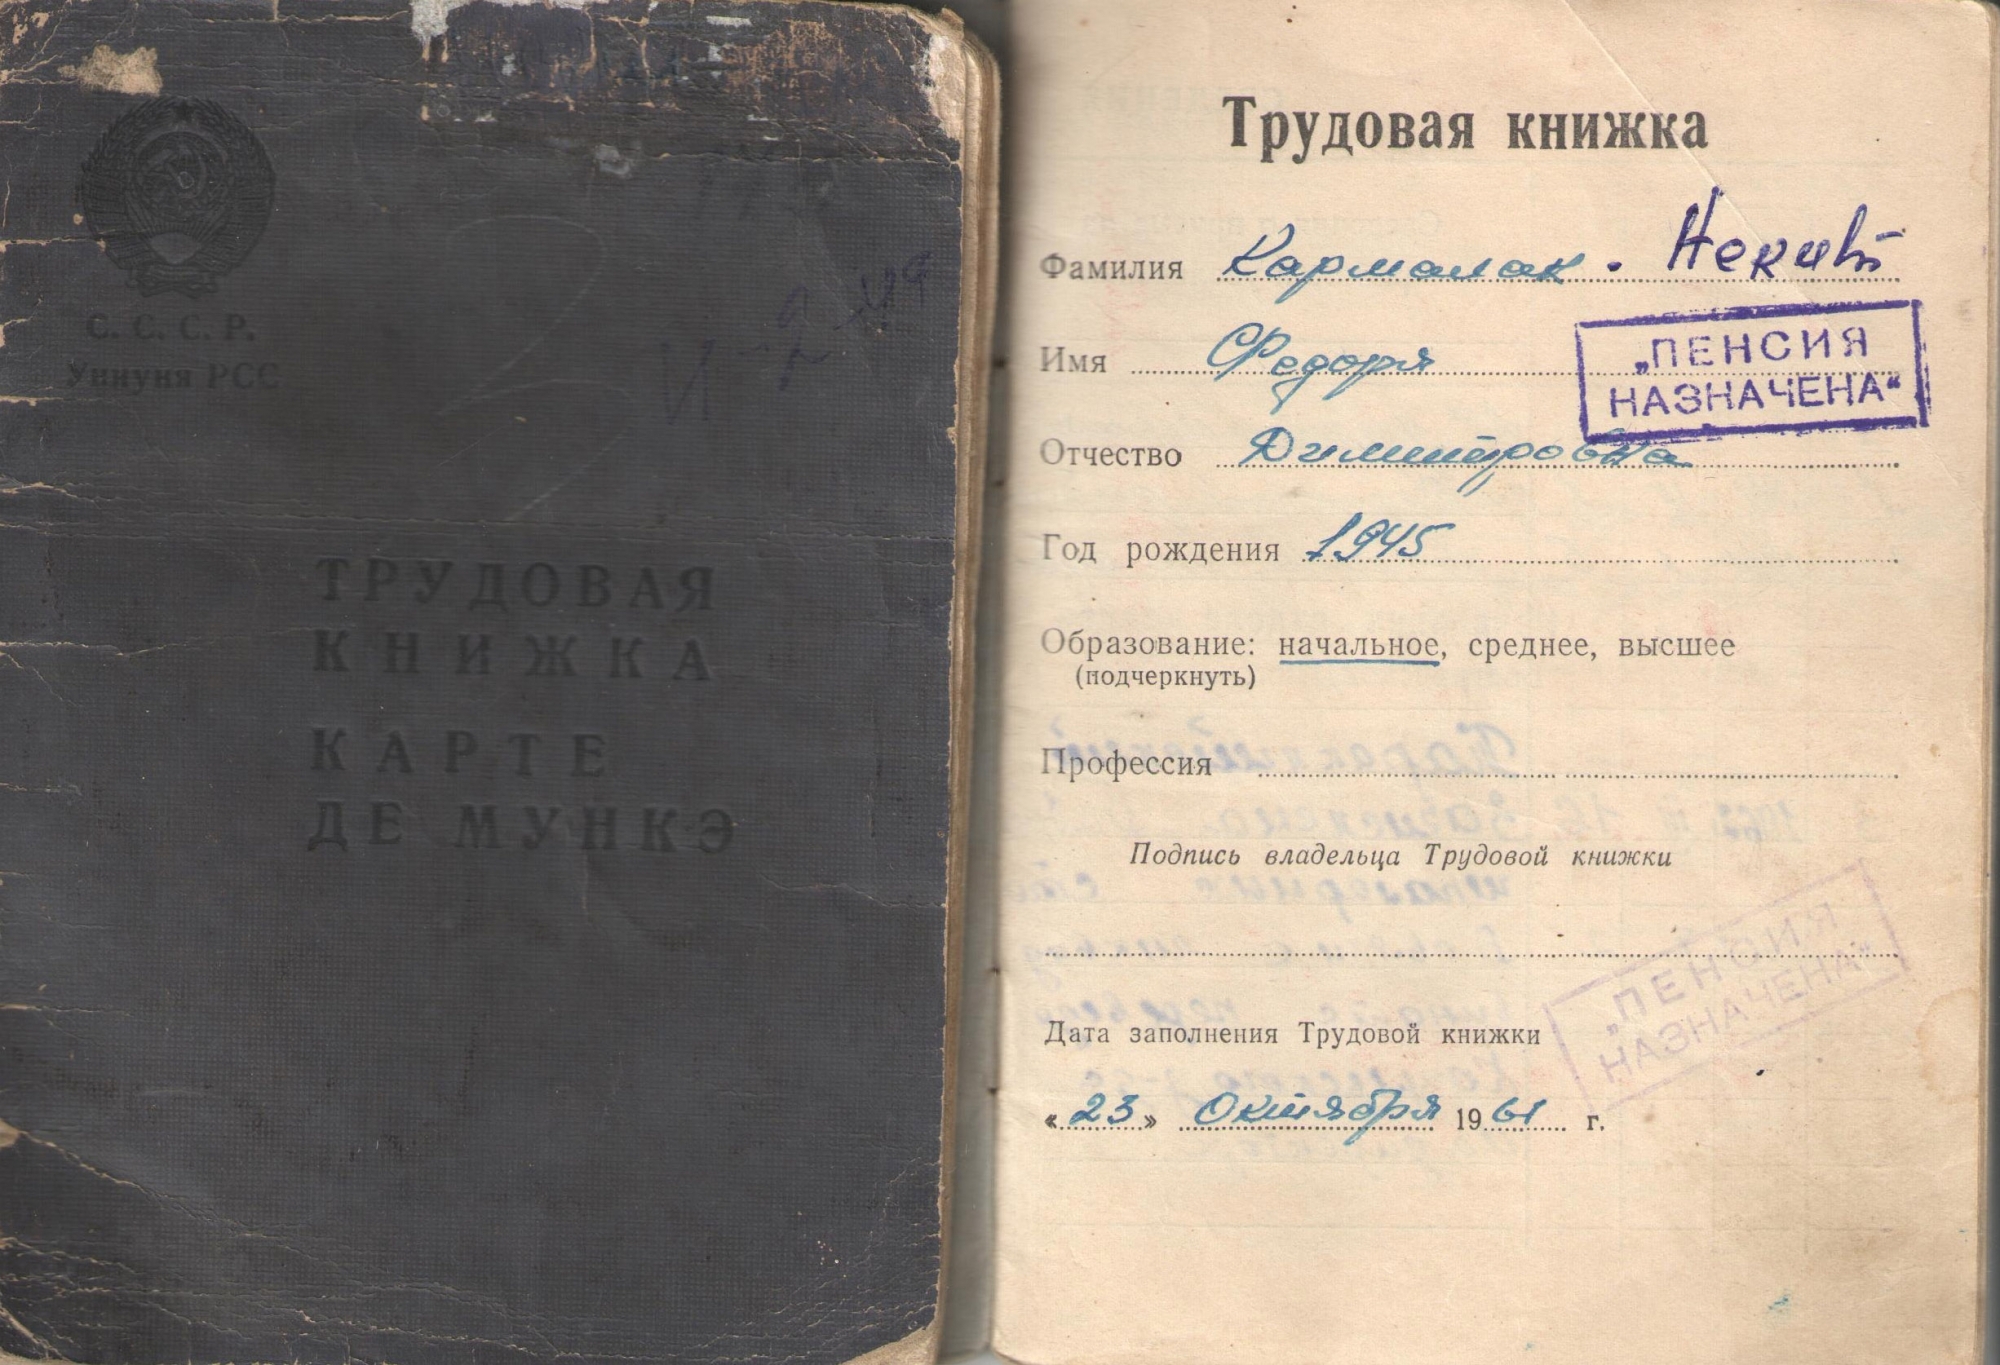 С. С. С. Р.
Униуня РСС
ТРУДОВАЯ
КНИЖКА
КАРТЕ
ДЕ МУНКЭ
Трудовая книжка
Фамилия Кармалак.
Имя Федоря
„ПЕНСИЯ
НАЗНАЧЕНА“
Отчество Димитровна
Год рождения 1945
Образование: начальное, среднее, высшее
(подчеркнуть)
Профессия
Подпись владельца Трудовой книжки
„ПЕНСИЯ
НАЗНАЧЕНА“
Дата заполнения Трудовой книжки
«23» Октября 1961 г.